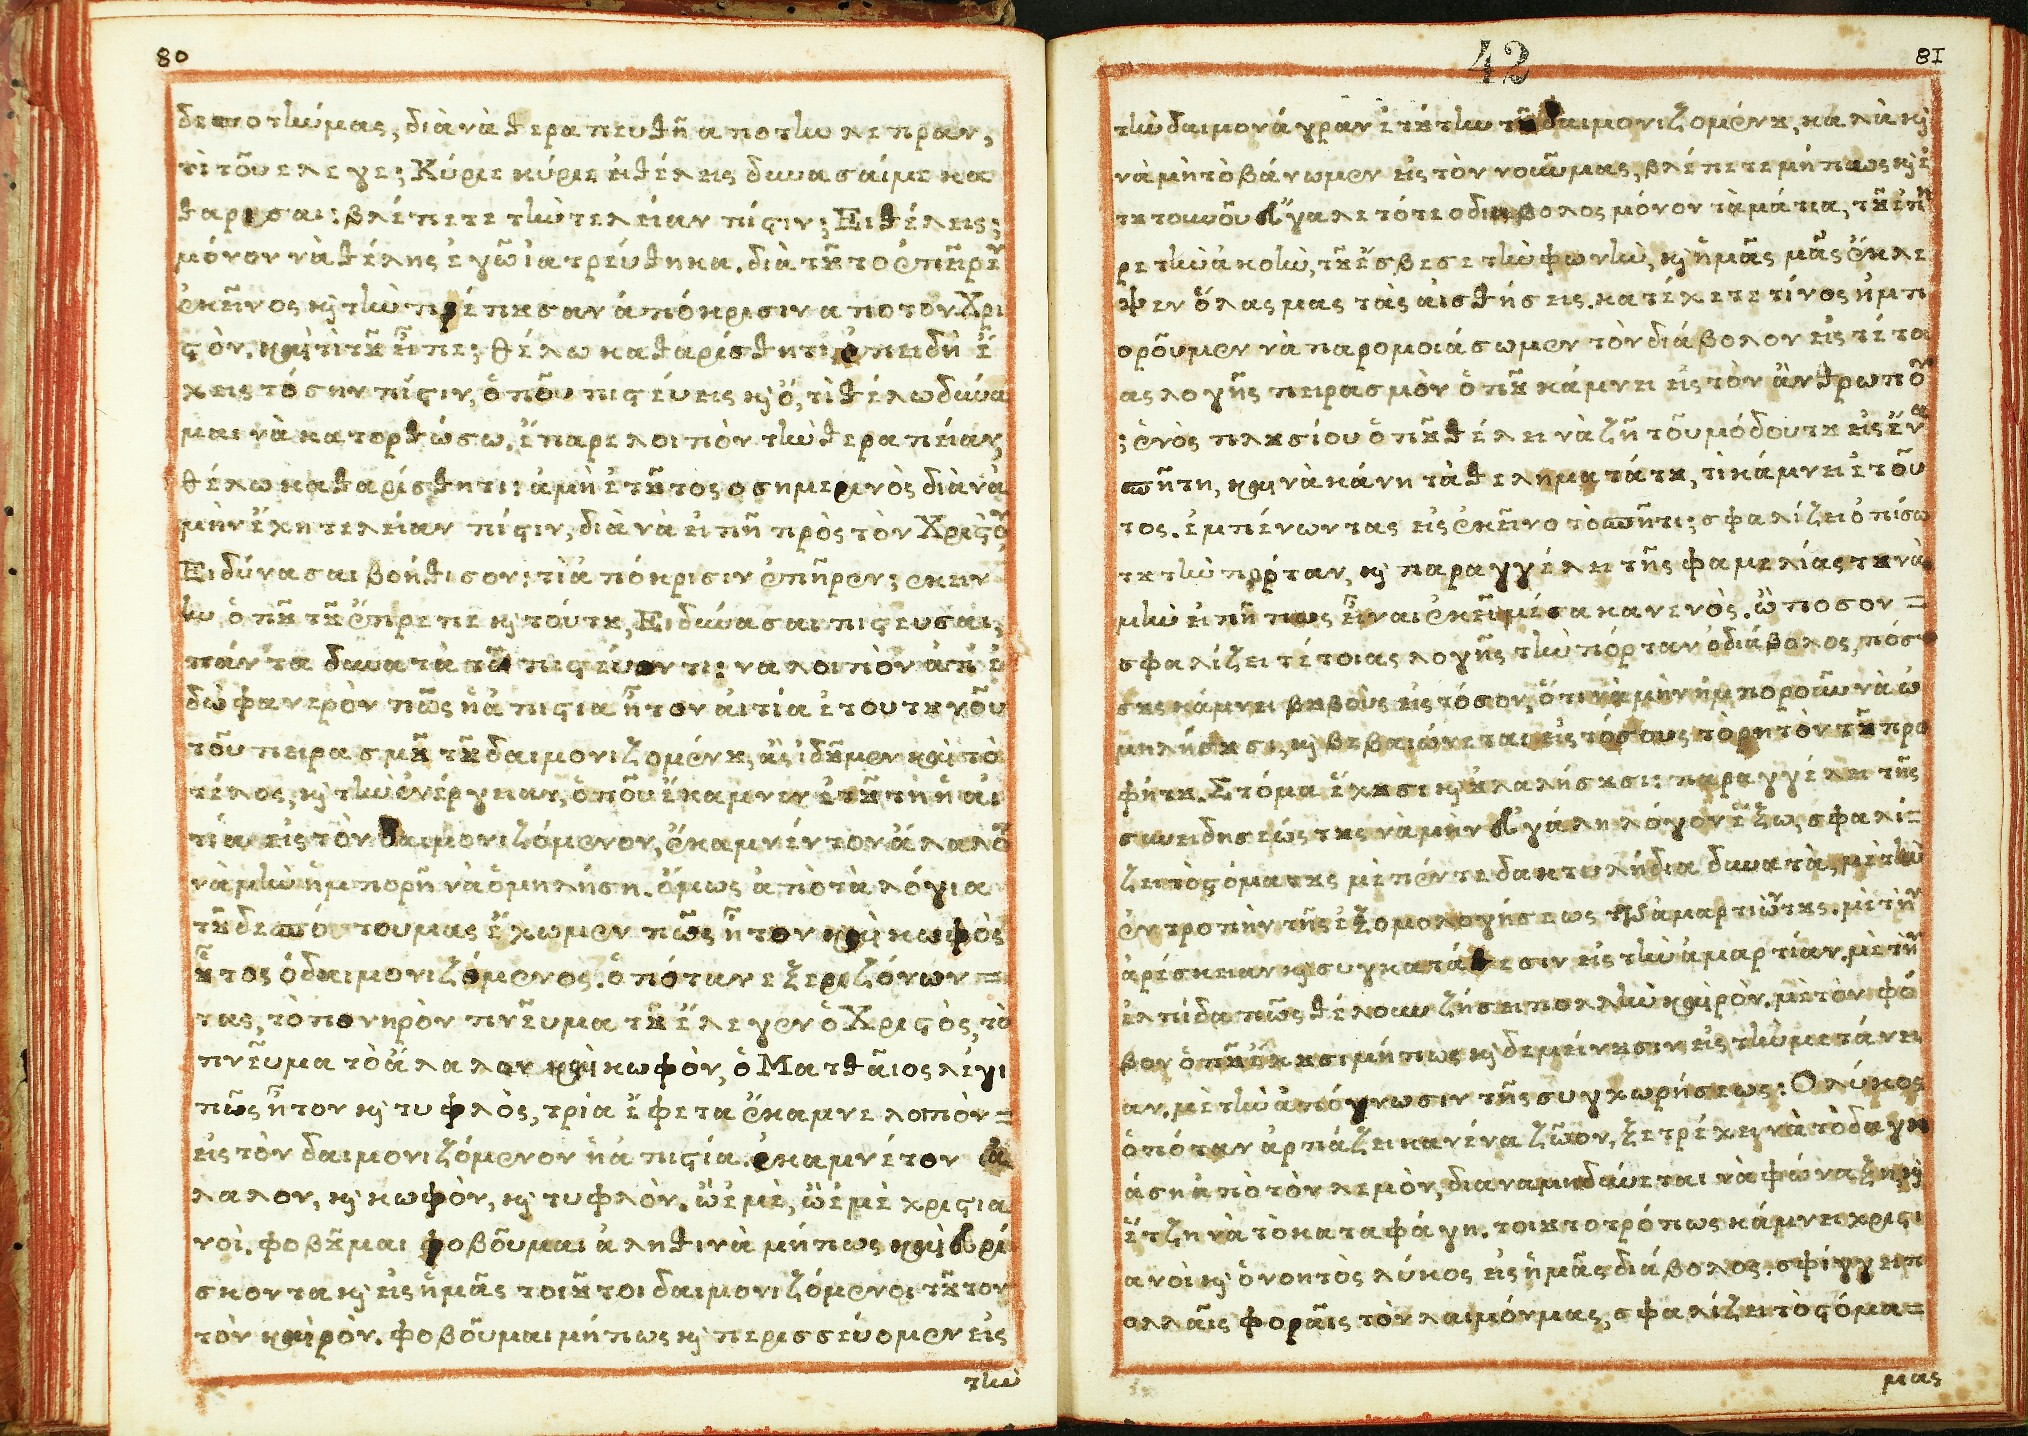 80
δεσποτήν μας, διὰ νὰ θεραπευθῆ απο τὴν λεπραν,
τὶ τοῦ ελεγε; Κύριε κύριε ει θέλεις δύνασαί με κα
θαρισαι: βλέπετε τὴν τελείαν πίστιν; Ει θέλεις;
μόνον νὰ θέλης ἐγῶ ἰατρεύθηκα. διὰ τοῦτο ἐπῆρεν
ἐκεῖνος καὶ τὴν πρέπουσαν ἀπόκρισιν απο τον Χρι
στὸν, καὶ τὶ του εἶπε; θέλω καθαρίσθητι, ἐπειδὴ ἔ
χεις τόσην πίστιν, ὁποῦ πιστέυεις καὶ ὅ, τι θέλω δύνα
μαι νὰ κατορθώσω. ἔπαρε λοιπὸν τὴν θεραπείαν,
θέλω καθαρίσθητι: ἀμὴ ἐτοῦτος ο σημερινὸς διὰ νὰ
μὴν ἔχη τελείαν πίστιν, διὰ νὰ ειπῆ πρὸς τὸν Χριστὸν
Ει δύνασαι βοήθισον: τὶ ἀπόκρισιν ἐπῆρεν; εκειν
ην ὁποῦ τοῦ ἔπρεπε καὶ τούτου, Ει δύνασαι πιστευσαι,
πάντα δυνατὰ τῶ πιστεύοντι: να λοιπὸν ἀπ ἐ
δῶ φανερὸν πῶς ἡ ἀπιστια ἦτον αἰτία ἐτουτουνοῦ
τοῦ πειρασμοῦ τοῦ δαιμονιζομένου, ἂς ἰδοῦμεν καὶ τὸ
τέλος, καὶ τὴν ἐνέργειαν, ὁποῦ ἔκαμνεν ἐτούτη ἡ αἰ
τία εἰς τὸν δαιμονιζόμενον, ἔκαμνέν τον ἄλαλον
νὰ μὴν ἠμπορῆ νὰ ὁμηλήση. ὅμως ἀπὸ τὰ λόγια
τοῦ δεσπότου μας ἔχωμεν πῶς ἦτον καὶ κωφὸς
οὗτος ὁ δαιμονιζόμενος. ὁπόταν εξεριζόνων=
τας, τὸ πονηρὸν πνεῦμα τοῦ ἔλεγεν ὁ Χριστὸς, τὸ
πνεῦμα τὸ ἄλαλον καὶ κωφὸν, ὁ Ματθαῖος λέγι
πῶς ἦτον καὶ τυφλὸς, τρία ἔφετα ἔκαμνε λοπὸν=
εἰς τὸν δαιμονιζόμενον ἡ ἀπιστία. ἔκαμνέ τον ἄ
λαλον, καὶ κωφὸν, καὶ τυφλὸν. ὢ ἐμὲ, ὢ ἐμὲ χριστια
νοὶ. φοβοῦμαι φοβοῦμαι ἀληθινὰ μήπως καὶ εὑρί
σκονται καὶ εἰς ἡμᾶς τοιοῦτοι δαιμονιζόμενοι τοῦτον
τὸν καιρὸν. φοβοῦμαι μήπως καὶ περισσεύομεν εἰς
τὴν
42
81
τὴν δαιμονάγραν ἐτούτην τοῦ δαιμονιζομένου, καλὰ καὶ
νὰ μὴ τὸ βάνωμεν εἰς τὸν νοῦν μας, βλέπετε μήπως καὶ ἐ
τουτουνοῦ εὔγαλε τότε ο διάβολος μόνον τὰ μάτια, τοῦ ἐπῆ
ρε τὴν ἀκοὴν, τοῦ ἔσβεσε τὴν φωνὴν, καὶ ἡμᾶς μᾶς ἔκλε
ψεν ὅλας μας τὰς αἰσθήσεις. κατέχετε τίνος ἠμπ
οροῦμεν νὰ παρομοιάσωμεν τὸν διάβολον εἰς τέτοι
ας λογῆς πειρασμὸν ὁποῦ κάμνει εἰς τὸν ἄνθρωπον
; ἑνὸς πλουσίου ὁποῦ θέλει νὰ ζῆ τοῦ μόδου του εἰς ἕνα
σπῆτη, καὶ νὰ κάνη τὰ θεληματά του, τὶ κάμνει ἐτοῦ
τος. ἐμπένωντας εἰς ἐκεῖνο τὸ σπῆτι; σφαλίζει ὀπίσω
του τὴν πόρταν, καὶ παραγγέλει τῆς φαμελίας του νὰ
μὴν ειπῆ πως εἶναι ἐκεῖ μέσα κανενὸς. ὢ ποσον=
σφαλίζει τέτοιας λογῆς τὴν πόρταν ὁ διάβολος, πόσ
ους κάμνει βουβοὺς εἰς τόσον, ὅτι νὰ μὴν ἠμποροῦν νὰ ὠ
μηλήσουσι, καὶ βεβαιώνεται εἰς τόσους τὸ ρητὸν τοῦ προ
φήτου. Στόμα ἔχουσι καὶ ου λαλήσουσι: παραγγέλει τῆς
συνειδησεώς τους νὰ μὴν εὐγάλη λόγον ἔξω, σφαλί=
ζει τὸ στόμα τους μὲ πέντε δακτυλήδια δυνατὰ, μὲ τὴν
ἐντροπὴν τῆς ἐξομολογήσεως τῶν ἁμαρτιῶν τους. μὲ τὴν
ἀρέσκειαν καὶ συγκατάθεσιν εἰς τὴν ἁμαρτίαν. μὲ τὴν
ἐλπίδα πῶς θέλουν ζήσει πολλὴν καιρὸν. μὲ τὸν φό
βον ὁποῦ ἔχουσι μήπως καὶ δεμείνουσιν εἰς τὴν μετάνει
αν. μὲ τὴν ἀπόγνωσιν τῆς συγχωρήσεως: Ο λύκος
ὁπόταν ἁρπάζει κανένα ζῶον, ξετρέχει νὰ τὸ δαγκ
άση ἀπὸ τὸν λεμὸν, δια να μηδάυεται νὰ φωναξη καὶ
ἔτζη νὰ τὸ καταφάγη. τοιουτοτρόπως κάμνει χριστι
ανοὶ καὶ ὁ νοητὸς λύκος εἰς ἡμᾶς διάβολος. σφίγγει π
ολλαῖς φοραῖς τὸν λαιμόν μας, σφαλίζει τὸ στόμα=
μας